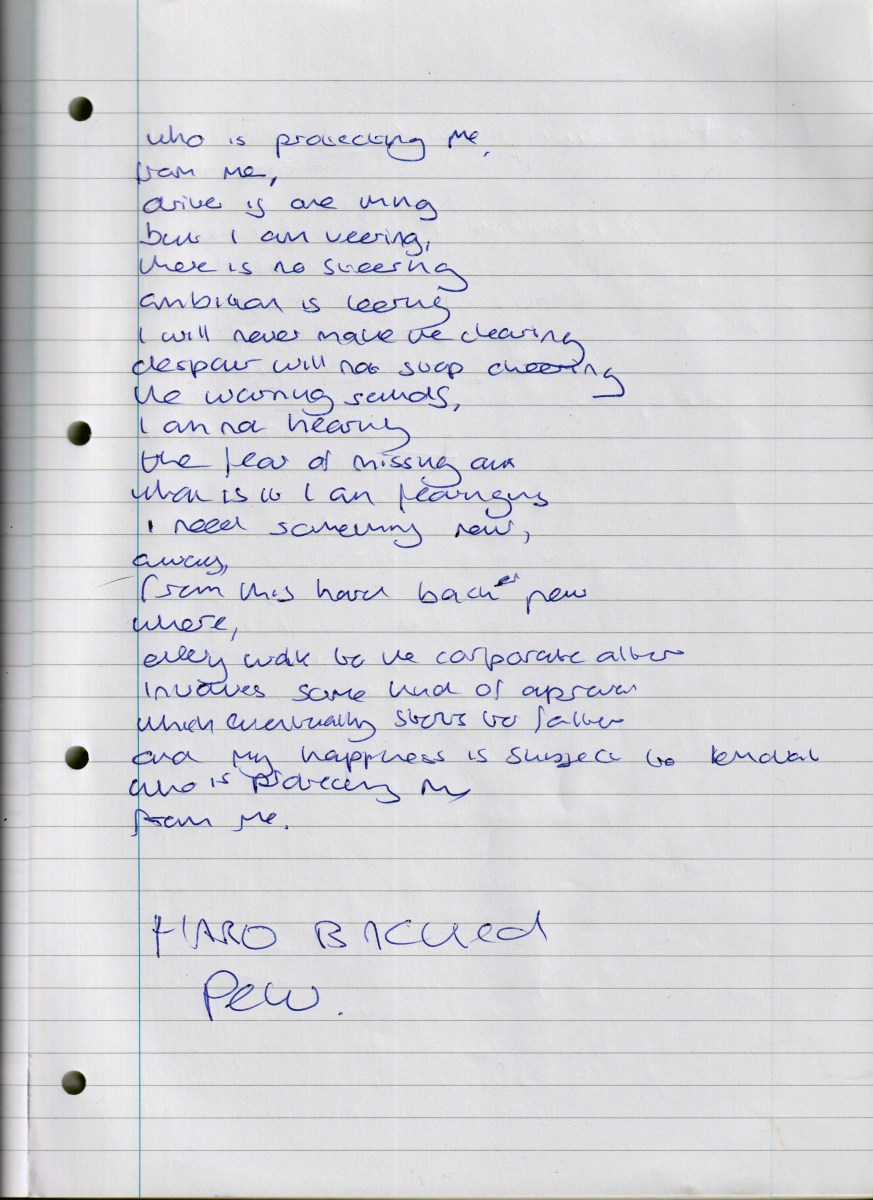 who is protecting me,
from me,
drive is one thing
but I am veering,
there is no steering
ambition is leering
I will never make the clearing
despair will not stop cheering
the warning sounds,
I am not hearing
the fear of missing out
what is it I am
I need something new,
away,
from this hard backed pew
where,
every walk to the corporate alter
involves some kind of
which eventually starts to falter
and my happiness is subject to
who is protecting me
from me.
HARD BACKed
Pew.